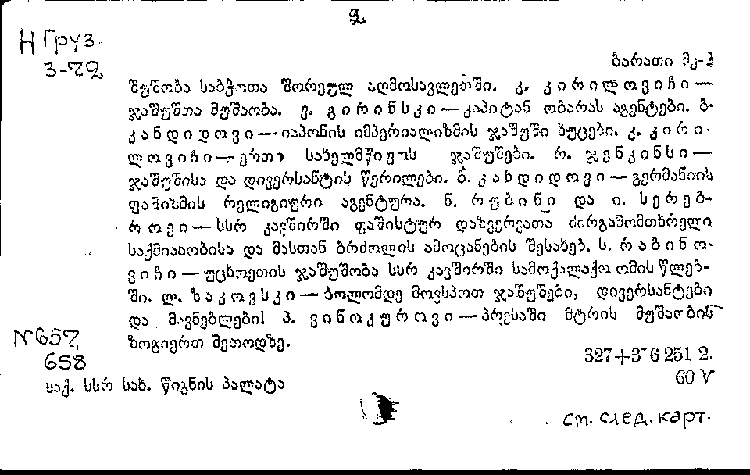 2.
Н Груз.
3-72
ბარათი მე-2
შუშობა საბჭოთა შორეულ აღმოსავლეთში. კ. კირილოვიჩი —
ჯაშუშთა მუშაობა. ე. გირინსკი — კაპიტან ობარას აგენტები. ბ.
კანდიდოვი — იაპონის იმპერიალიზმის ჯაშუში ბუცები. კ. კირი-
ლოვიჩი — ერთი სახელმწიფოს ჯაშუშები. რ. ჯენკინსი —
ჯაშუშისა და დივერსანტის წერილები. ბ. კანდიდოვი — გერმანიის
ფაშიზმის რელიგიური აგენტურა. ნ. რუბინი და ი. სერებ-
როვი — სსრ კავშირში ფაშისტურ დაზვერვათა ძირგამომთხრელი
საქმიანობისა და მასთან ბრძოლის ამოცანების შესახებ. ს. რაბინო-
ვიჩი — უცხოეთის ჯაშუშობა სსრ კავშირში სამოქალაქო ომის წლებ-
ში. ლ. ზაკოვსკი — ბოლომდე მოვსპოთ ჯაშუშები, დივერსანტები
და მავნებლები პ. ვინოკუროვი — პრესაში მტრის მუშაობის
ზოგიერთ მეთოდზე.
N657,
658
327+376 251 2.
საქ. სსრ სახ. წიგნის პალატა
60 V
см. след. карт.